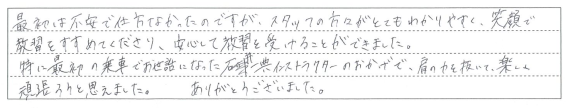 最初は不安で仕方なかったのですが、スタッフの方々がとてもわかりやすく、笑顔で
教習をすすめてくださり、安心して教習を受けることができました。
特に最初の乗車でお世話になったインストラクターのおかげで、肩の力を抜いて、楽しく
頑張ろうと思えました。 ありがとうございました。